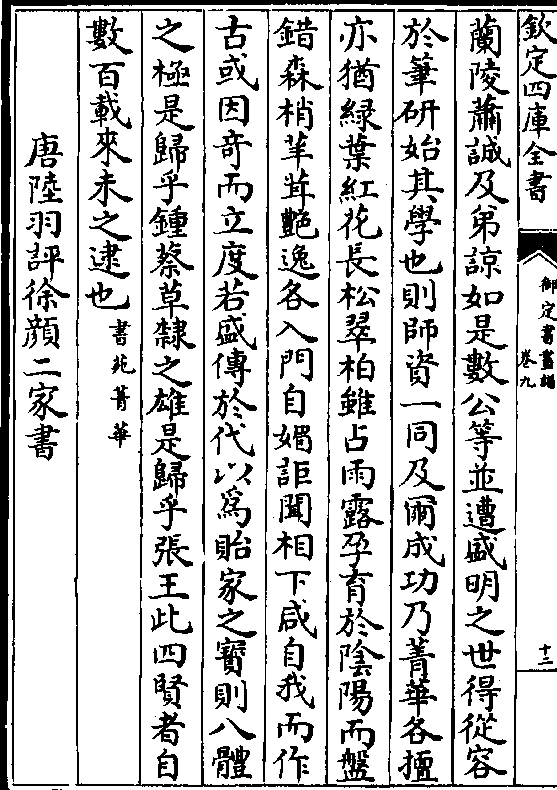 欽定四庫全書
御定書畫譜
卷九
十二
蘭陵蕭誠及弟諒如是數公等並遭盛明之世得從容
於筆研始其學也則師資一同及爾成功乃菁華各擅
亦猶綠葉紅花長松翠柏雖占雨露孕育於陰陽而盤
錯森梢䔿茸艷逸各入門自媚詎聞相下咸自我而作
古或因奇而立度若盛傳於代以為貽家之寳則八體
之極是歸乎鍾蔡草隸之雄是歸乎張王此四賢者自
數百載來未之逮也書苑菁華
唐陸羽評徐顔二家書